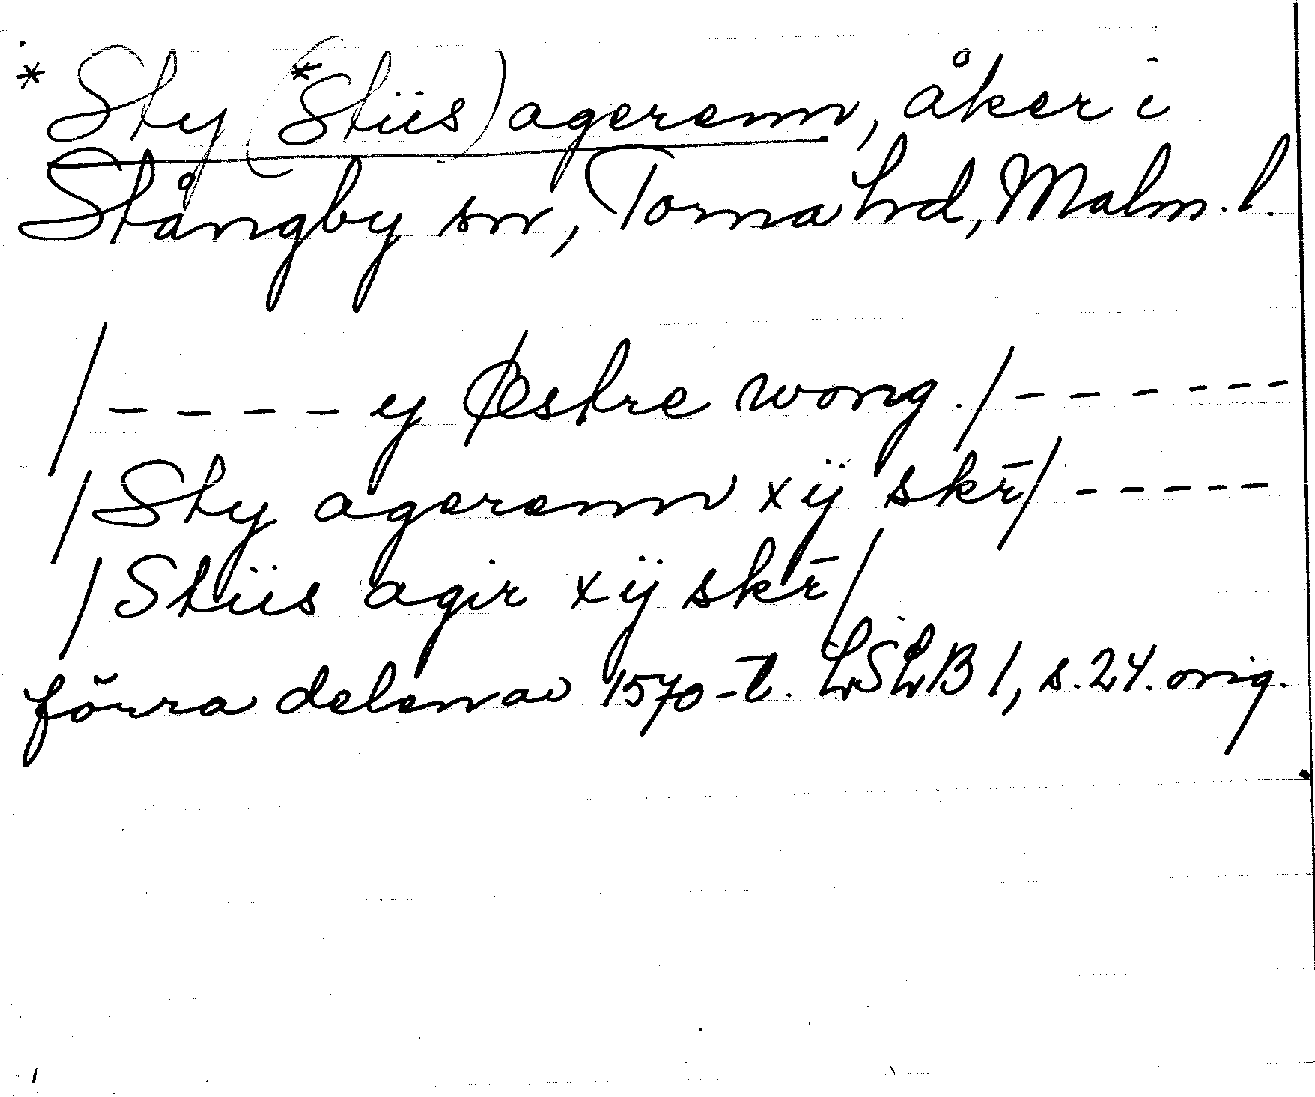 *Sty (*Stiis) agerenn, åker i
Stångby sn, Torna hd, Malm. l.
/ – – – – – y Østre wong. / – – – – – –
/ Sty agerenn xij skr̄ / – – – – –
/ Stiis agir xij skr̄ /
förra delen av 1570-t. LSLB 1, s. 24. orig.